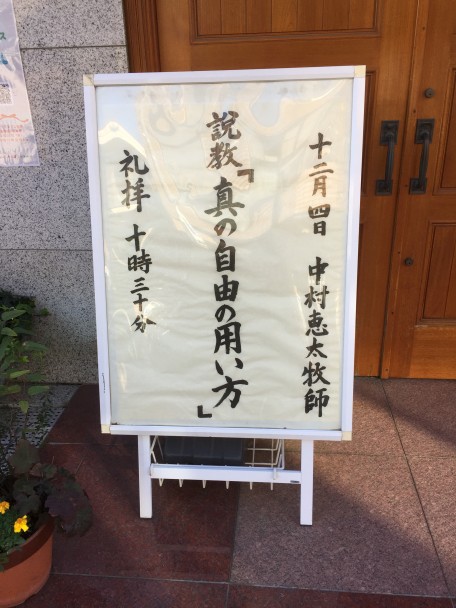 十二月四日 中村恵太牧師
説教「真の自由の用い方」
礼拝 十時三十分